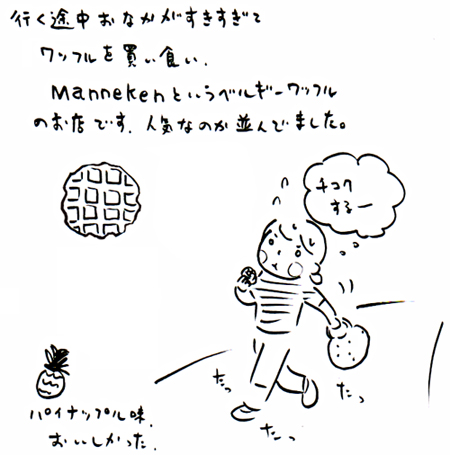 行く途中おなかがすきすぎて
ワッフルを買い食い.
Mannekenというベルギーワッフル
のお店です.人気なのか並んでました。
チコク
するー
たっ
たっ
たっ
パイナップル味.
おいしかった.